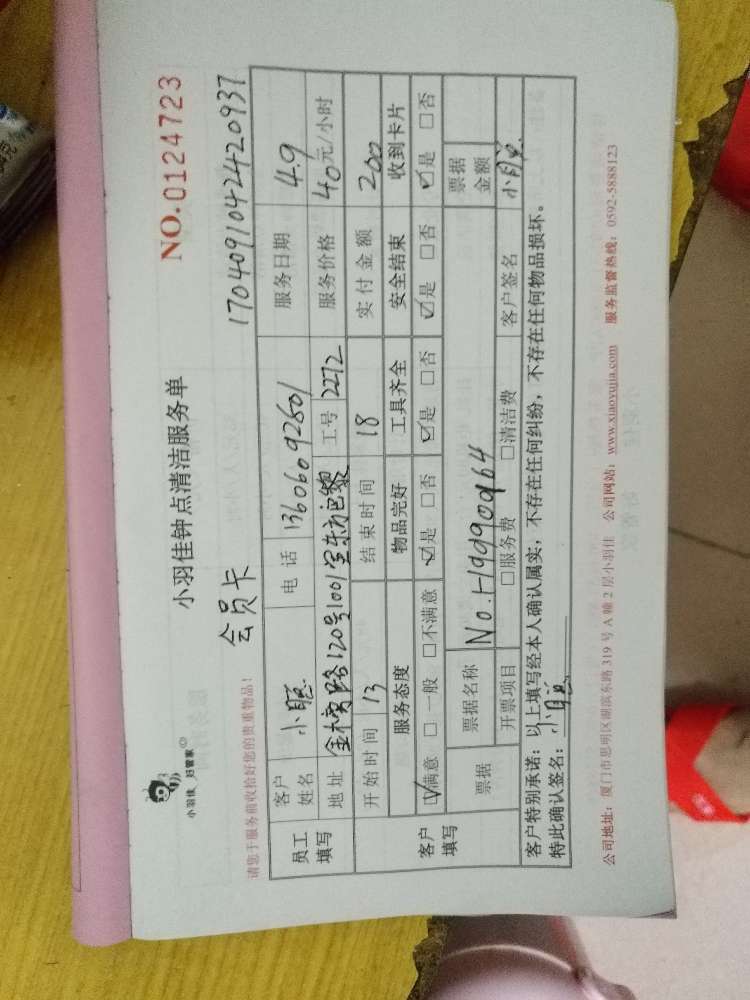 小羽佳钟点清洁服务单
NO.0124723
小羽佳 好管家
请您于服务前收拾好您的贵重物品！
会员卡
1704091042420937
员工填写
客户姓名 小聪 电话 13606092601 服务日期 4.9
地址 金榜路120号1001室东方巴黎 工号 2272 服务价格 40元/小时
开始时间 13 结束时间 18 实付金额 200
客户填写
服务态度 物品完好 工具齐全 安全结束 收到卡片
☑满意 □一般 □不满意 ☑是 □否 ☑是 □否 ☑是 □否 ☑是 □否
票据 票据名称 No.H99909964 票据金额
开票项目 □服务费 □清洁费 客户签名 小聪
客户特别承诺：以上填写经本人确认属实，不存在任何纠纷，不存在任何物品损坏。
特此确认签名：小聪
公司地址：厦门市思明区湖滨东路319号A幢2层小羽佳 公司网站：www.xiaoyujia.com 服务监督热线：0592-5888123